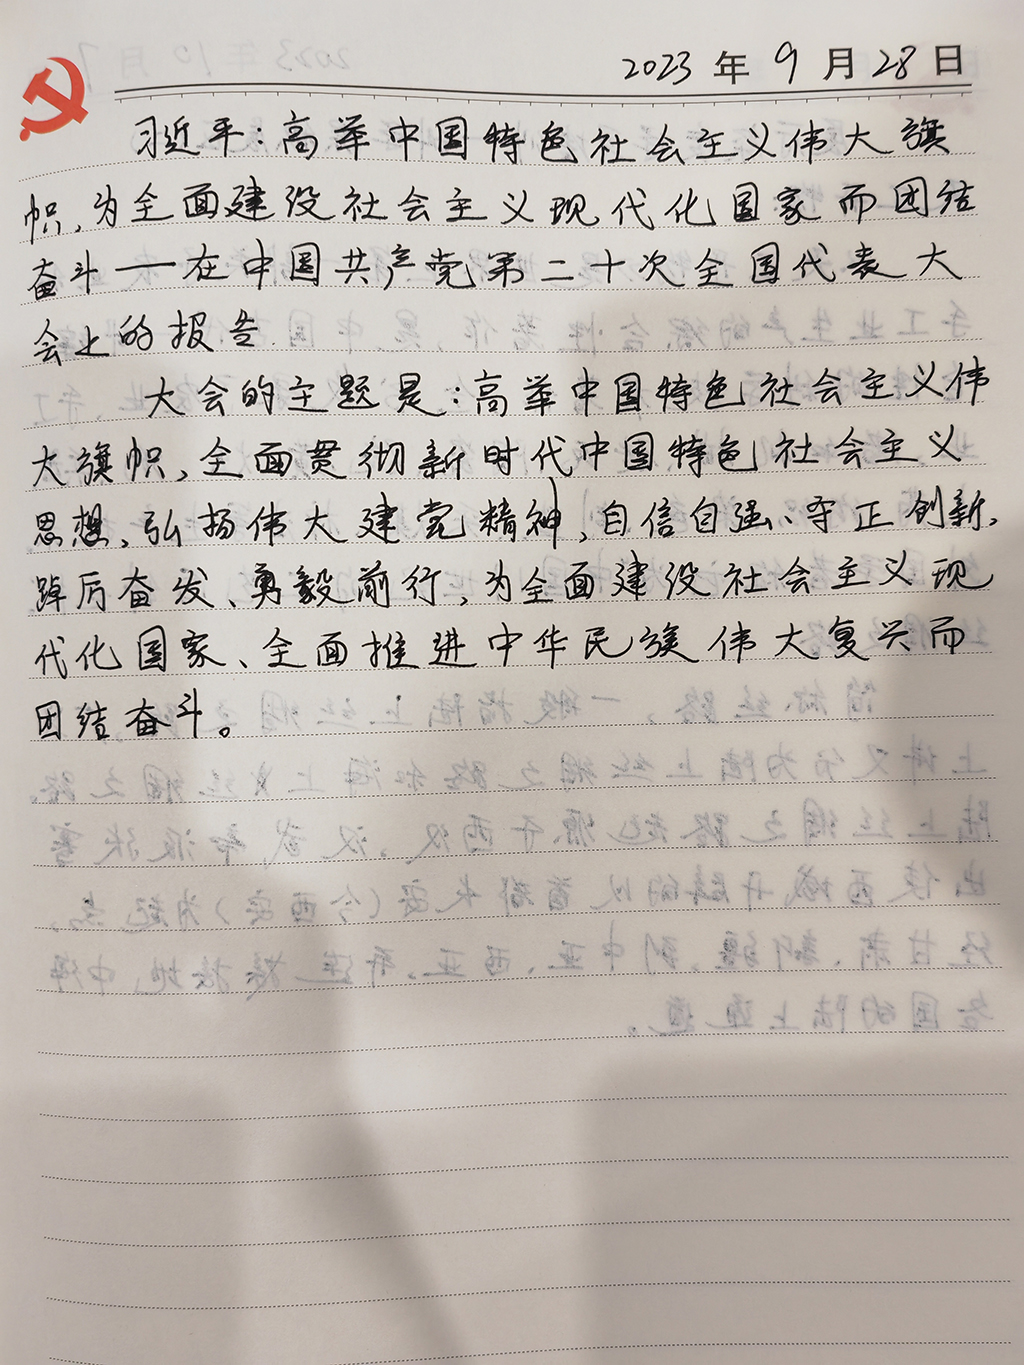 2023年9月28日
习近平:高举中国特色社会主义伟大旗
帜,为全面建设社会主义现代化国家而团结
奋斗——在中国共产党第二十次全国代表大
会上的报告
大会的主题是:高举中国特色社会主义伟
大旗帜,全面贯彻新时代中国特色社会主义
思想,弘扬伟大建党精神,自信自强、守正创新,
踔厉奋发、勇毅前行,为全面建设社会主义现
代化国家、全面推进中华民族伟大复兴而
团结奋斗。